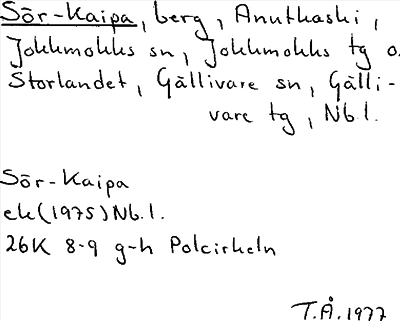 Sör-Kaipa, berg, Anutkaski,
Jokkmokks sn, Jokkmokks tg o.
Storlandet, Gällivare sn, Gälli-
vare tg, Nb.l.
Sör-Kaipa
ek(1975)Nb.l.
26K 8-9 g-h Polcirkeln
T.Å.1977